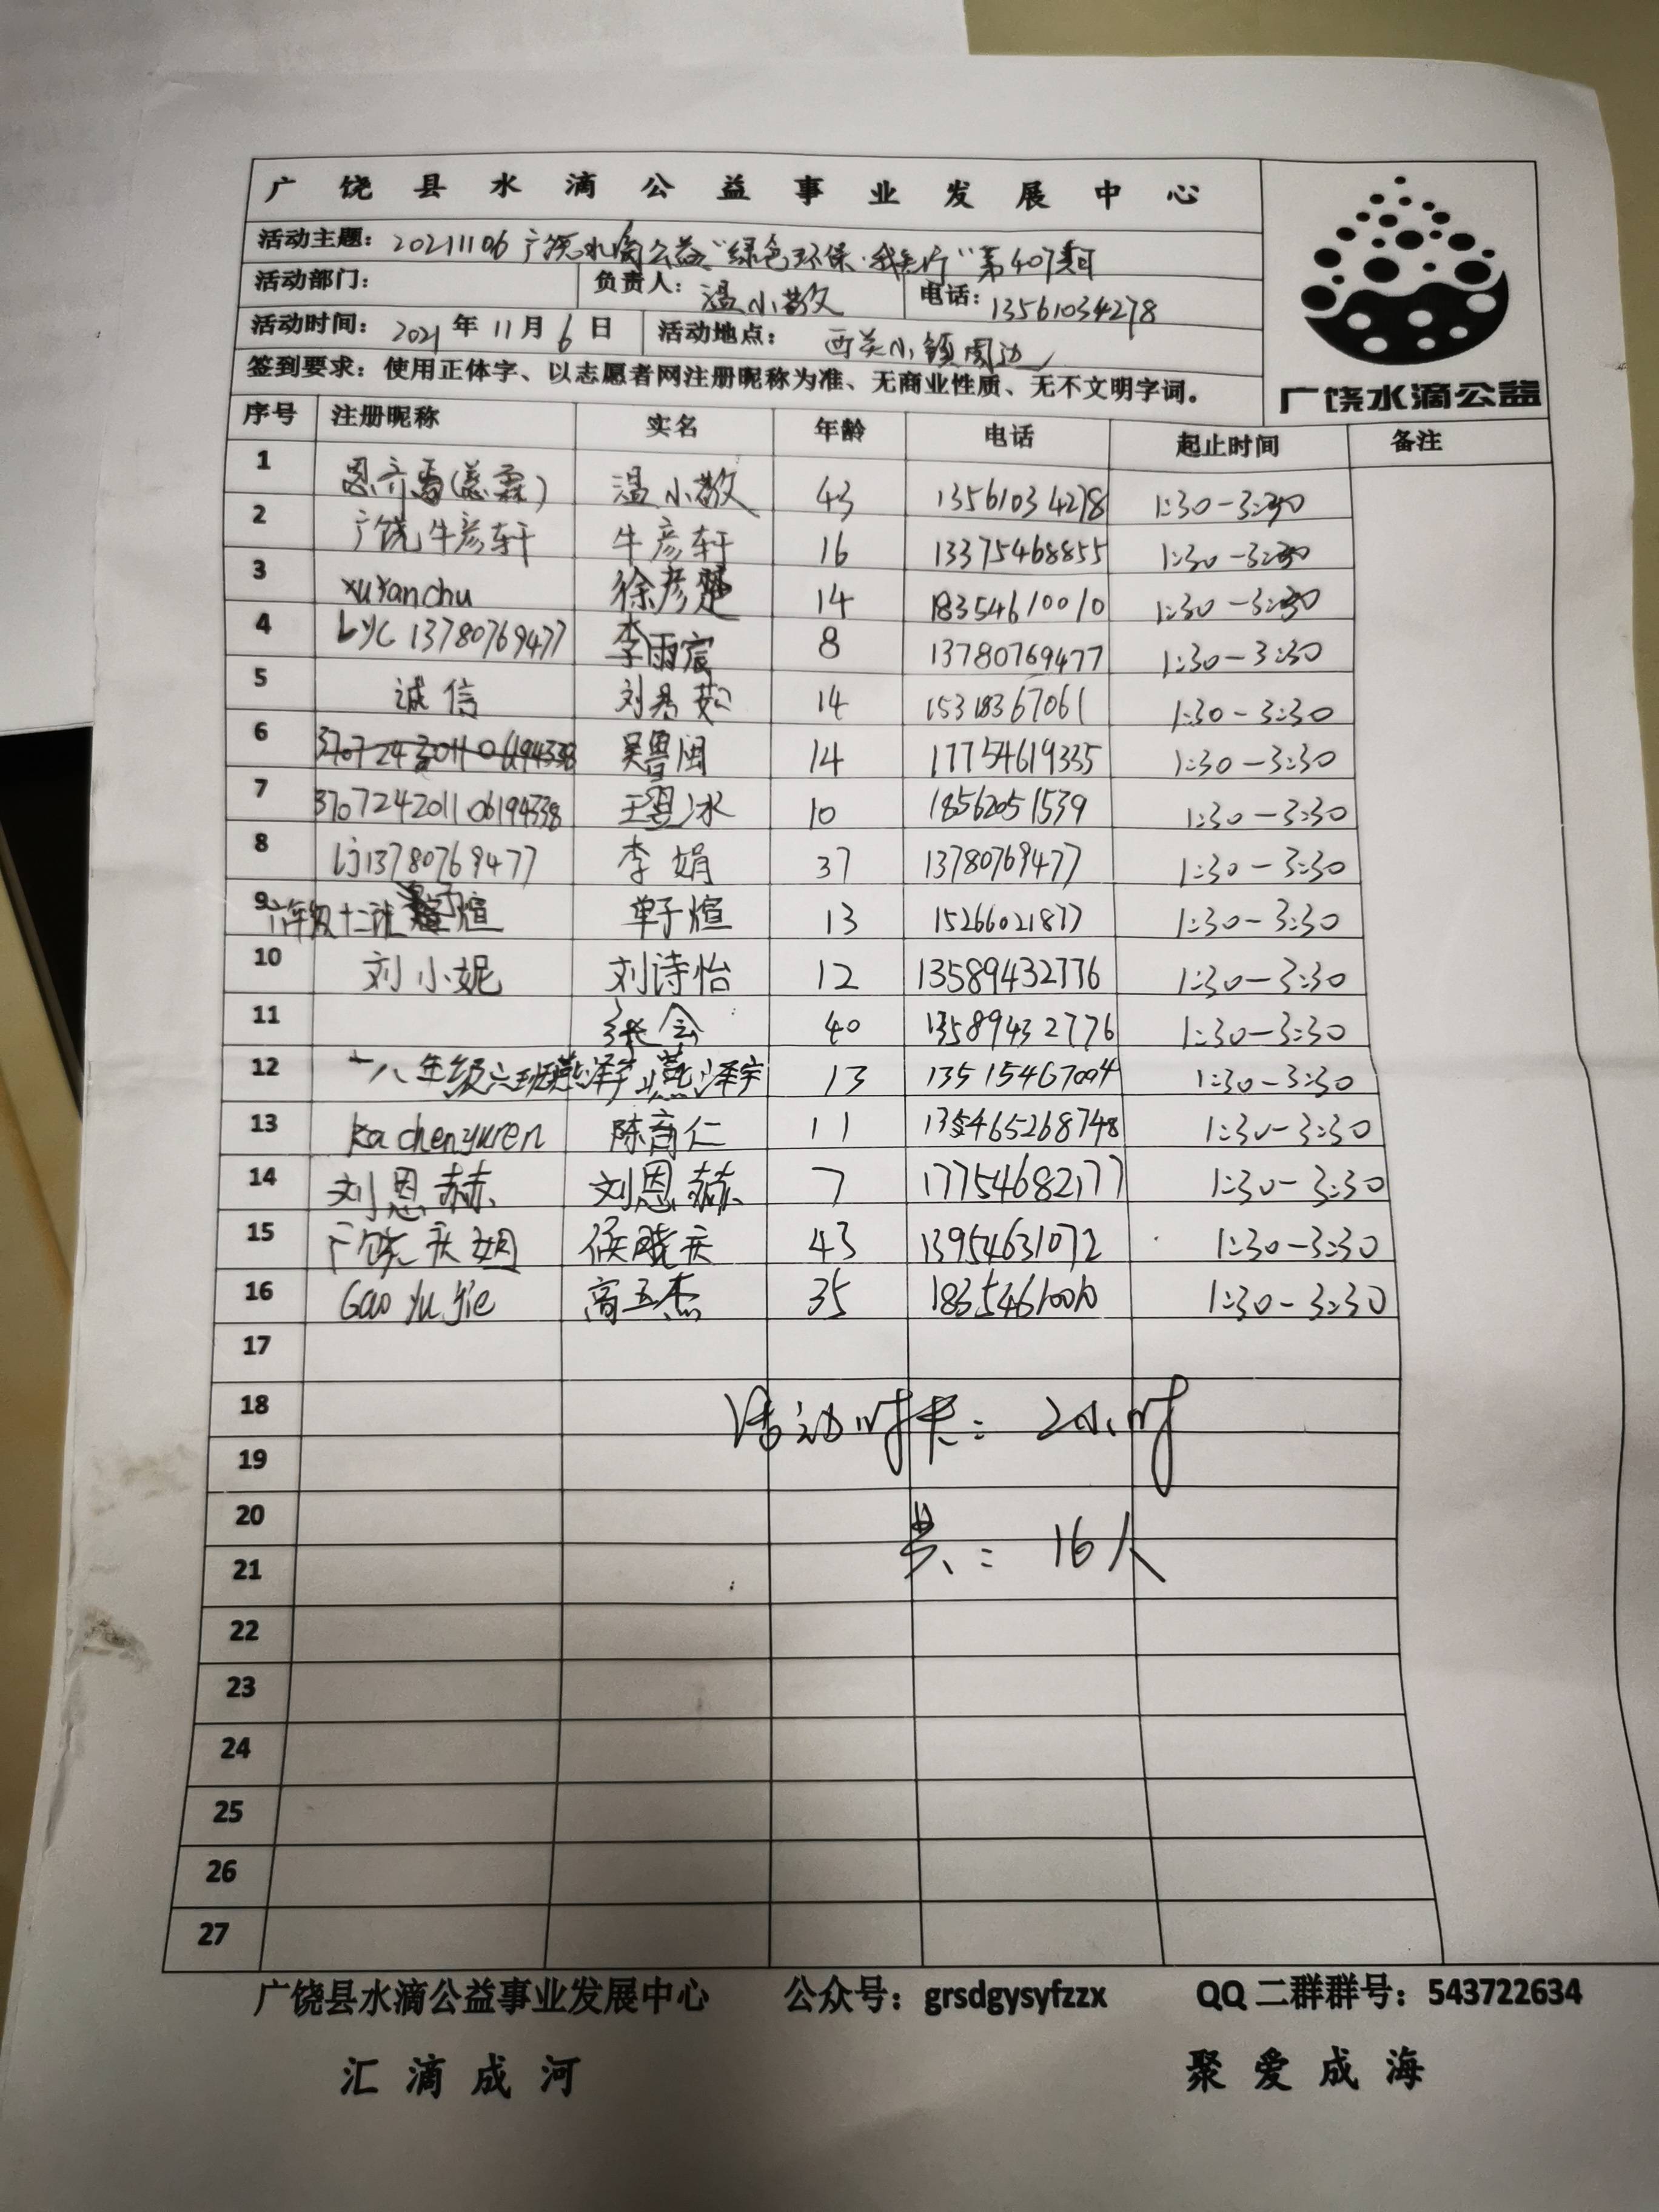 广饶县水滴公益事业发展中心
活动主题：20211106广饶水滴公益"绿色环保·我先行"第407期
活动部门： 负责人：温小敬 电话：13561034278
活动时间：2021年11月6日 活动地点：西关小镇周边
签到要求：使用正体字、以志愿者网注册昵称为准、无商业性质、无不文明字词。
广饶水滴公益
序号 注册昵称 实名 年龄 电话 起止时间 备注
1 温小敬 43 13561034278 1:30-3:30
2 广饶牛彦轩 牛彦轩 16 13375468855 1:30-3:30
3 xuYanchu 徐彦楚 14 18354610010 1:30-3:30
4 Lyc 13780769477 李雨宸 8 13780769477 1:30-3:30
5 诚信 刘 14 15318367061 1:30-3:30
6 吴鲁闽 14 17754619335 1:30-3:30
7 370724201106194338 王翌冰 10 18562051539 1:30-3:30
8 Lj13780769477 李娟 37 13780769477 1:30-3:30
9 六年级十二班 煊 单子煊 13 15266021877 1:30-3:30
10 刘小妮 刘诗怡 12 13589432776 1:30-3:30
11 张会 40 13589432776 1:30-3:30
12 八年级六班燕泽宇 燕泽宇 13 13515467004 1:30-3:30
13 kachenyuren 陈育仁 11 1:30-3:30
14 刘恩赫 刘恩赫 7 17754682177 1:30-3:30
15 广饶庆姐 侯晓庆 43 13954631072 1:30-3:30
16 Gao Yu Jie 高玉杰 35 18354610010 1:30-3:30
17
18 活动时长：2小时
19
20 共：16人
21
22
23
24
25
26
27
广饶县水滴公益事业发展中心 公众号：grsdgysyfzzx QQ二群群号：543722634
汇滴成河 聚爱成海